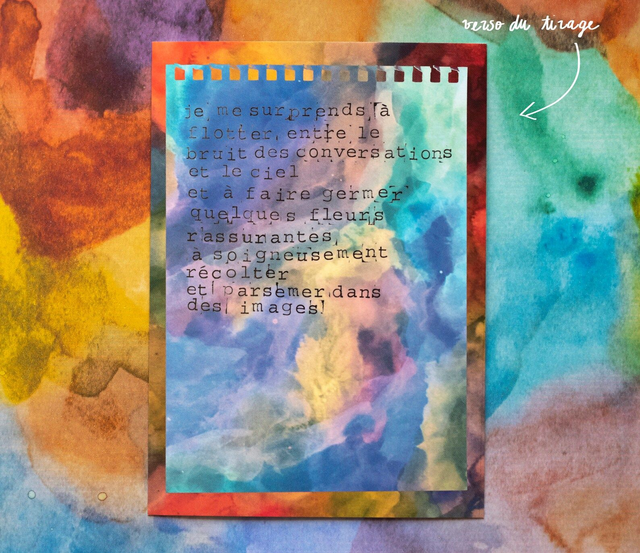 verso du tirage
je me surprends à
flotter, entre le
bruit des conversations
et le ciel
et à faire germer
quelques fleurs
rassurantes,
a soigneusement
récolter
et parsemer dans
des images